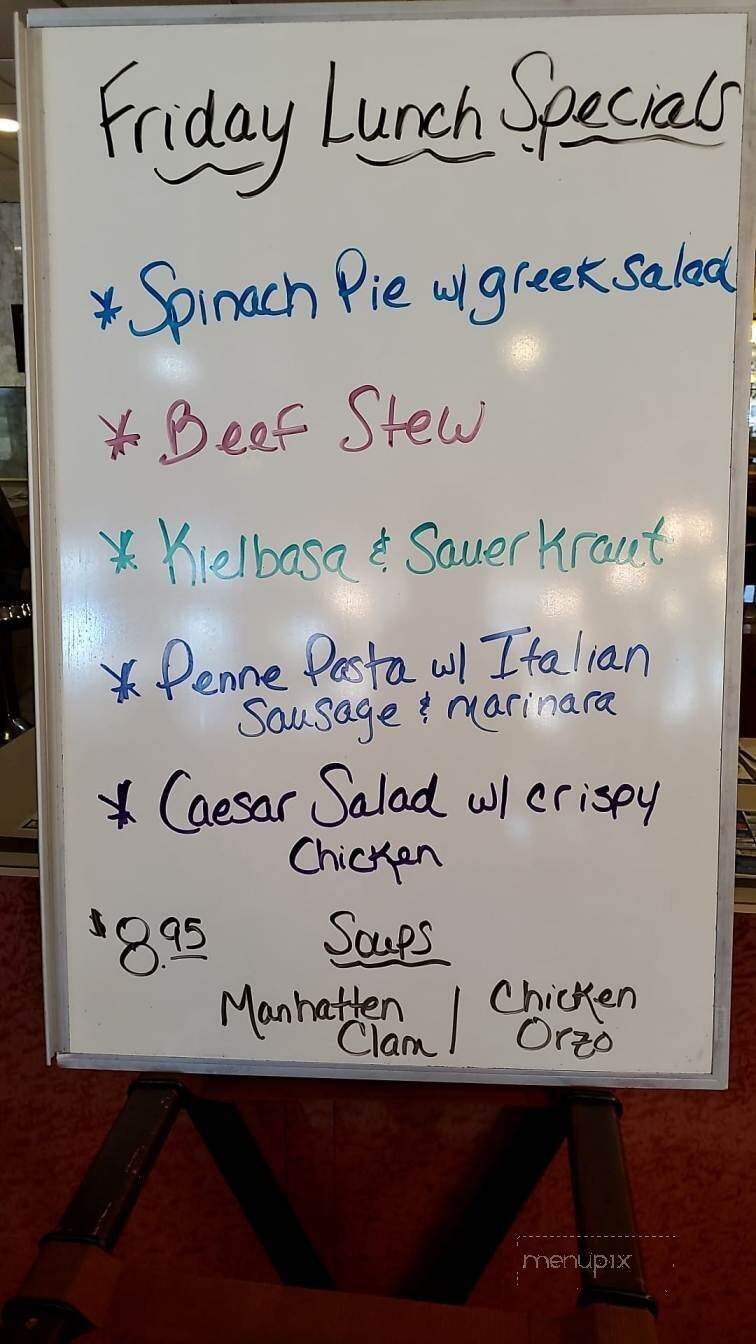 Friday Lunch Specials
* Spinach Pie w/ greek salad
* Beef Stew
* Kielbasa & Sauerkraut
* Penne Pasta w/ Italian
Sausage & marinara
* Caesar Salad w/ crispy
Chicken
$8.95 Soups
Manhatten | Chicken
Clam | Orzo
menupix